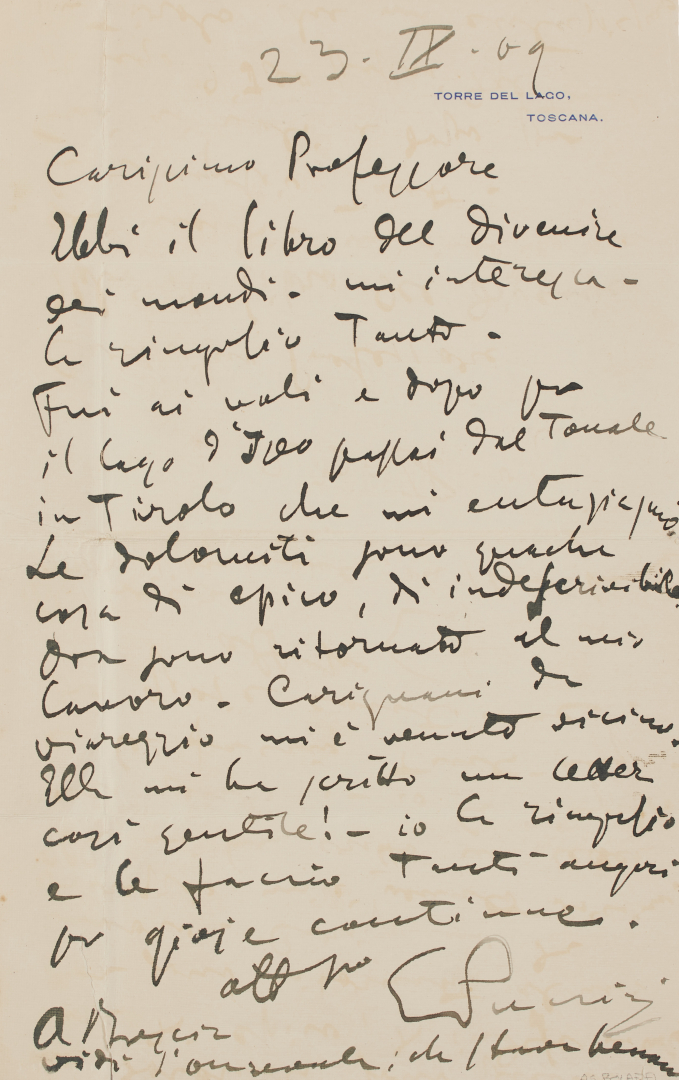 23. IX. 09
TORRE DEL LAGO,
TOSCANA.
Carissimo Professore
Ebbi il libro del divenire
dei mondi - mi interessa -
La ringrazio Tanto -
Fui ai voli e dopo per
il lago d'Iseo passai dal Tonale
in Tirolo che mi entusiasmò.
Le dolomiti sono qualche
cosa di epico, di indescrivibile.
Ora sono ritornato al mio
lavoro - Carignani da
viareggio mi è venuto vicino.
Ella mi ha scritto una letter
così gentile! - io La ringrazio
e le faccio Tanti auguri
per gioje continue.
aff suo GPuccini
A Brescia
vidi l'onorevole; che